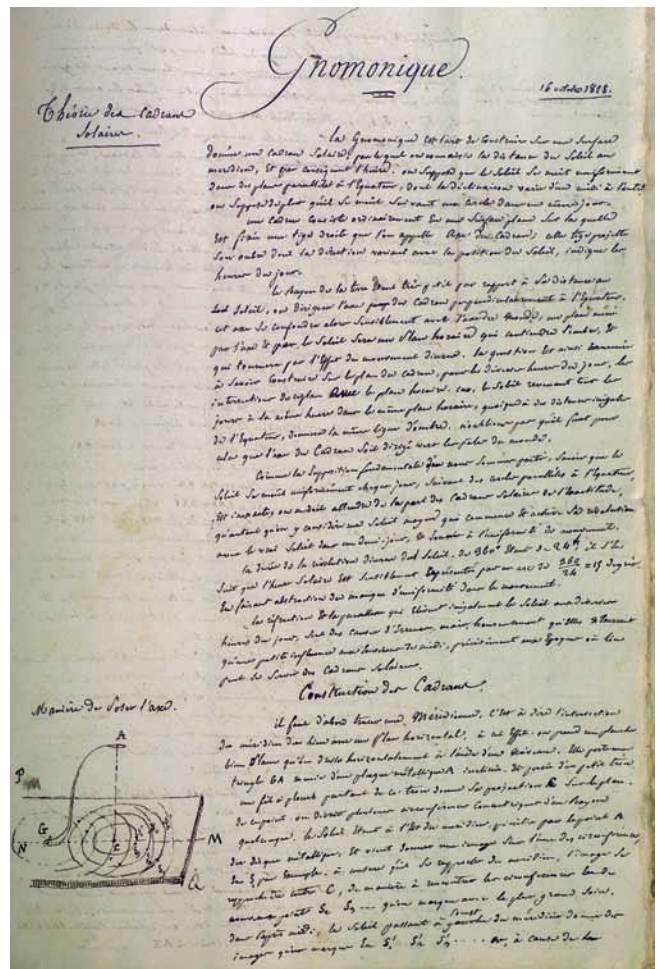 Gnomonique.
16 octobre 1818.
Théorie des Cadrans
Solaires.
La Gnomonique est l'art de construire sur une surface
donnée un cadran solaire, par lequel on connaisse la distance du Soleil au
méridien, et par conséquent l'heure. on suppose que le Soleil se meût uniformément
dans des plans parallèles à l'Equateur, dont la déclinaison varie d'un midi à l'autre
on suppose de plus qu'il se meût suivant un cercle dans un même jour.
un cadran consiste ordinairement en une surface plane sur laquelle
est fixée une tige droite que l'on appelle axe du Cadran; cette tige projette
son ombre dont la direction variant avec la position du Soleil, indique les
heures du jour.
le Rayon de la terre étant très petit par rapport à sa distance au
Soleil, on dirigera l'axe du Cadran perpendiculairement à l'Equateur.
cet axe se confondra alors sensiblement avec l'axe du monde, un plan mené
par l'axe et par le Soleil sera un plan horaire qui contiendra l'ombre, et
qui tournera par l'effet du mouvement diurne. la question est ainsi ramenée
à savoir construire sur le plan du cadran, pour les diverses heures du jour, les
intersections de ce plan avec le plan horaire. car, le Soleil revenant tous les
jours à la même heure dans le même plan horaire, quoiqu'à des distances inégales
de l'Equateur, donnera la même ligne d'ombre. n'oublions pas qu'il faut pour
cela que l'axe du Cadran soit dirigé vers les pôles du monde.
Comme la supposition fondamentale d'où nous sommes partis, savoir que le
Soleil se meût uniformément chaque jour, suivant des cercles parallèles à l'Equateur,
est inexacte, on ne doit attendre de la part des Cadrans solaires de l'exactitude,
qu'autant qu'on y considère un Soleil moyen qui commence et achève sa révolution
avec le vrai Soleil dans un demi-jour, et
la durée de la révolution diurne du Soleil, de 360° étant de 24h, il s'en
suit que l'heure solaire est sensiblement représentée par un arc de 360/24 = 15 degrés.
En faisant abstraction du manque d'uniformité dans le mouvement.
la réfraction et la parallaxe qui élèvent inégalement le Soleil aux diverses
heures du jour, sont des causes d'erreurs, mais, heureusement qu'elles n'exercent
qu'une petite influence aux environs de midi, précisément aux époques où l'on
peut se servir des Cadrans solaires.
Construction des Cadrans.
Manière de poser l'axe.
il faut d'abord tracer une Méridienne, c'est à dire l'intersection
du méridien du lieu avec un plan horizontal, à cet effet, on prend une planche
bien plane qu'on dresse horizontalement à l'aide d'un niveau. Elle porte une
triangle GA munie d'une plaque métallique A inclinée, et percée d'un petit trou,
un fil à plomb partant de ce trou donne sa projection C sur le plan.
de ce point, on décrit plusieurs circonférences concentriques d'un Rayon
quelconque. le Soleil étant à l'Est du méridien,
du disque métallique, et vient donner une image sur l'une des circonférences,
en S, par exemple. à mesure qu'il se rapproche du méridien, l'image se
rapproche du centre C, de manière à rencontrer les circonférences
aux points S2 S3 ... qu'on marque avec le plus grand soin.
dans l'après midi, le Soleil passant à l'ouest du méridien donne des
images qu'on marque en S'1 S'2 S'3 ..... or, à cause de la
P
M
A
G
N
C
M
Q